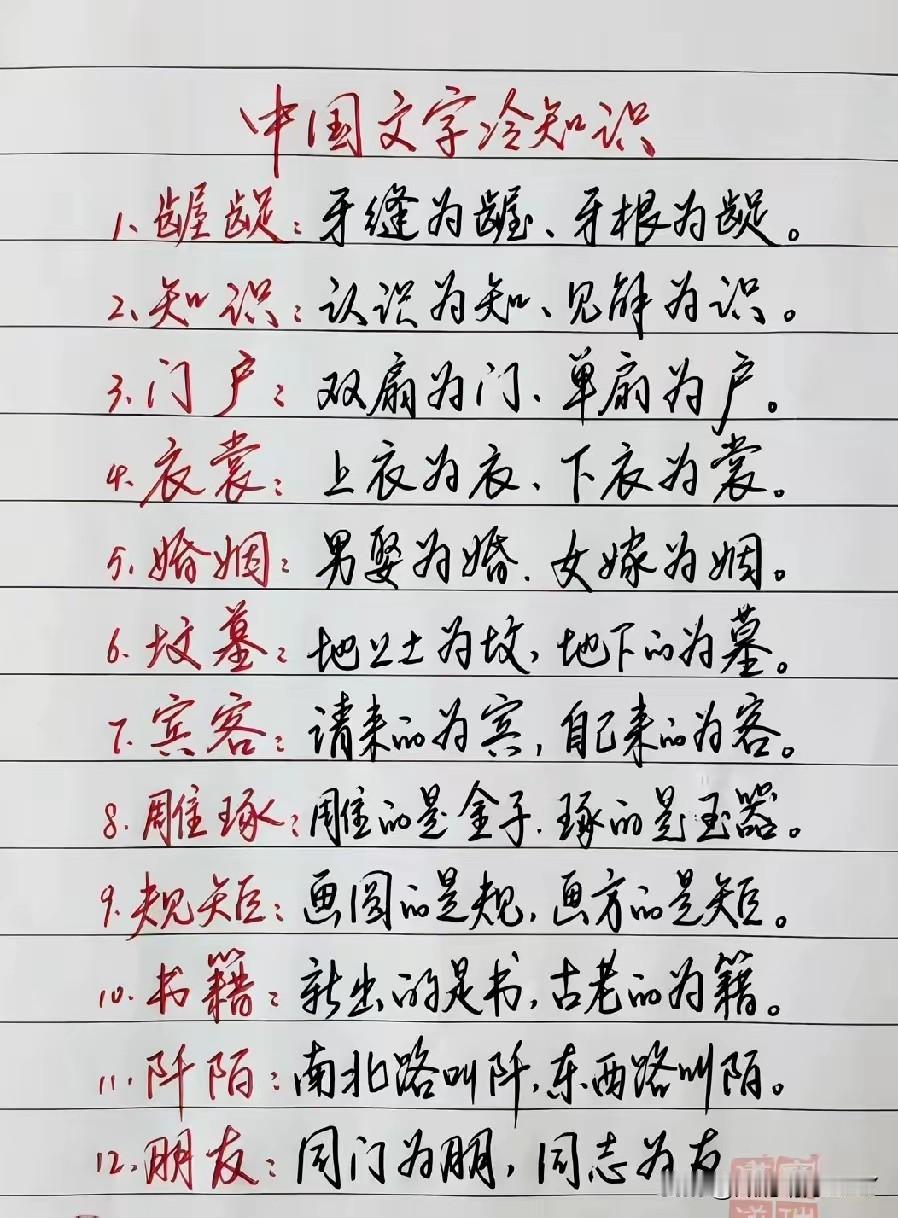 中国文字冷知识
1、龌龊：牙缝为龌、牙根为龊。
2、知识：认识为知、见解为识。
3、门户：双扇为门、单扇为户。
4、衣裳：上衣为衣、下衣为裳。
5、婚姻：男娶为婚、女嫁为姻。
6、坟墓：地上土为坟，地下的为墓。
7、宾客：请来的为宾，自己来的为客。
8、雕琢：雕的是金子、琢的是玉器。
9、规矩：画圆的是规，画方的是矩。
10、书籍：新出的是书，古老的为籍。
11、阡陌：南北路叫阡，东西路叫陌。
12、朋友：同门为朋，同志为友